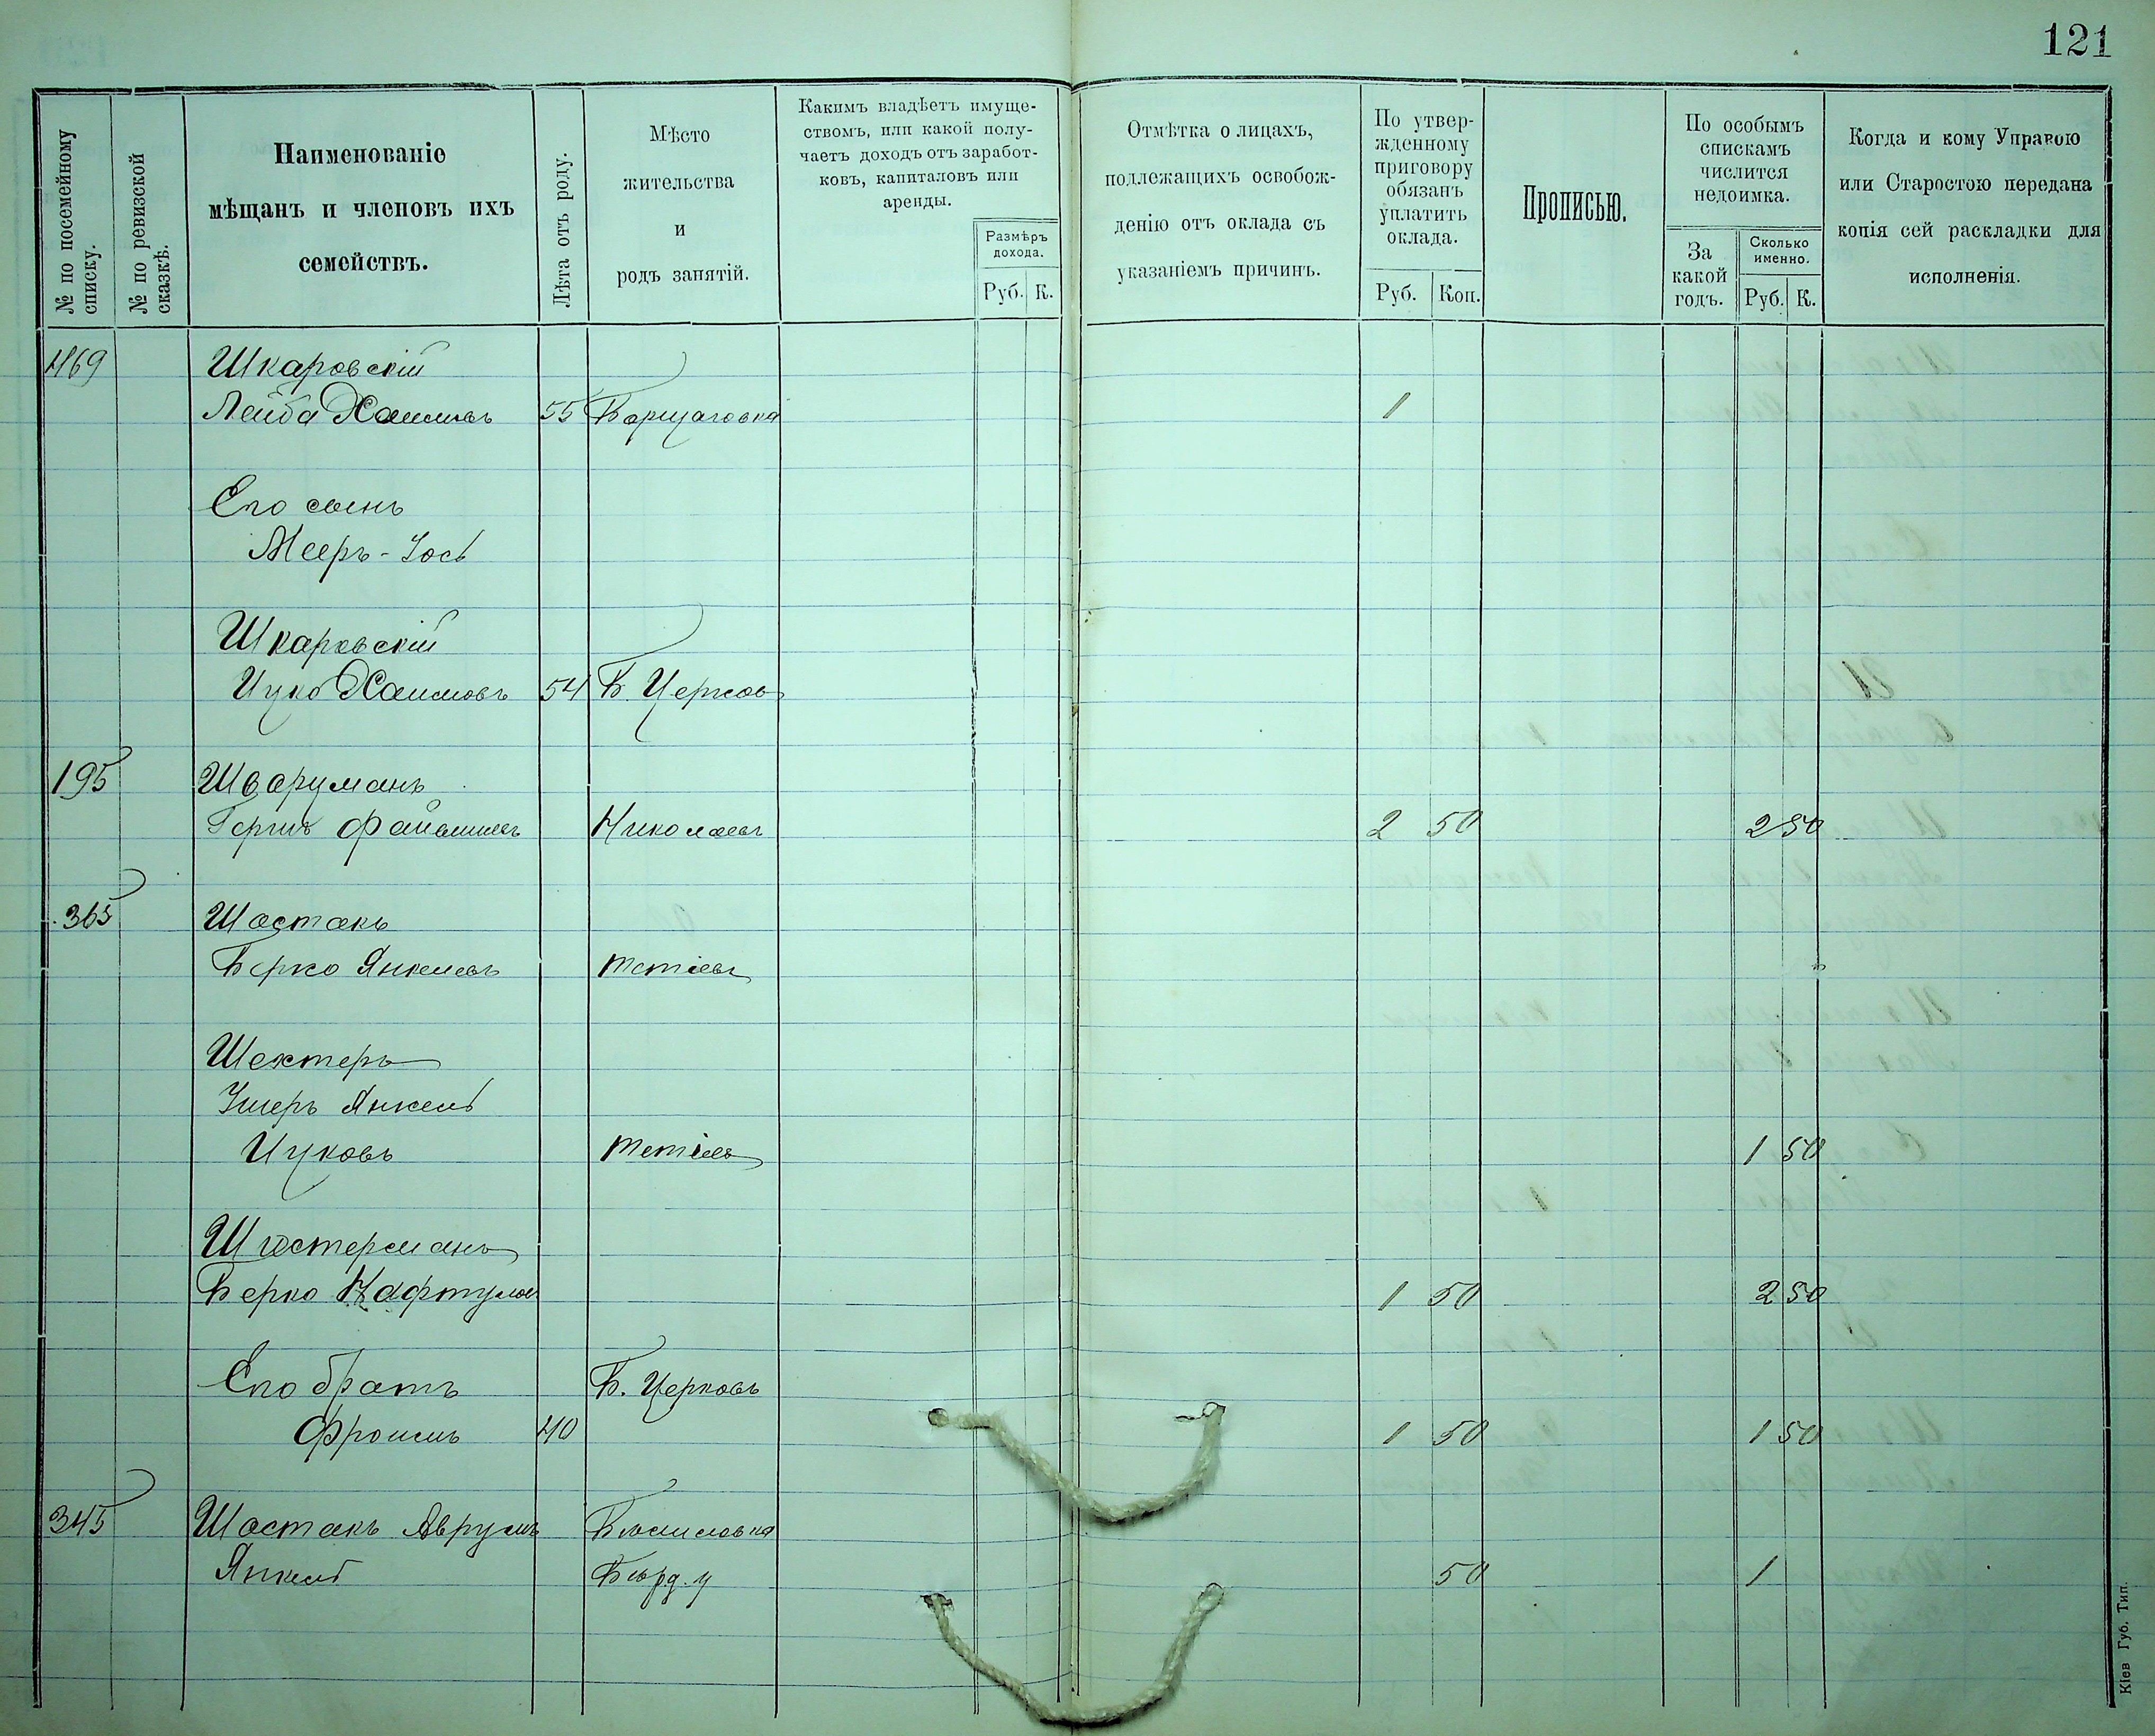 121
№ по посемейному списку.
№ по ревизской сказкѣ.
Наименованіе
мѣщанъ и членовъ ихъ
семействъ.
Лѣта отъ роду.
Мѣсто
жительства
и
родъ занятій.
Какимъ владѣетъ имуще-
ствомъ, или какой полу-
чаетъ доходъ отъ заработ-
ковъ, капиталовъ или
аренды.
Размѣръ
дохода.
Руб. К.
Отмѣтка о лицахъ,
подлежащихъ освобож-
денію отъ оклада съ
указаніемъ причинъ.
По утвер-
жденному
приговору
обязанъ
уплатить
оклада.
Руб. Коп.
Прописью.
По особымъ
спискамъ
числится
недоимка.
За
какой
годъ.
Сколько
именно.
Руб. К.
Когда и кому Управою
или Старостою передана
копія сей раскладки для
исполненія.
469 Шкаровскій
Лейба Хаимовъ 55 Борщаговка 1
Его сынъ
Мееръ-Іось
Шкаровскій
Ицко Хаимовъ 54 Б. Церковь
195 Шварцманъ
Николаевъ 2 50 2 50
365 Шостакъ
Берко Янкелевъ Тетіевъ
Шехтеръ
Ушеръ Янкель
Ицковъ Тетіевъ 1 50
Берко Нафтулов 1 50 2 50
Его братъ Б. Церковь
Фроимъ 40 1 50 1 50
345 Шостакъ Аврумъ
Янкель Берд. у 50 1
Кіев Губ. Тип.